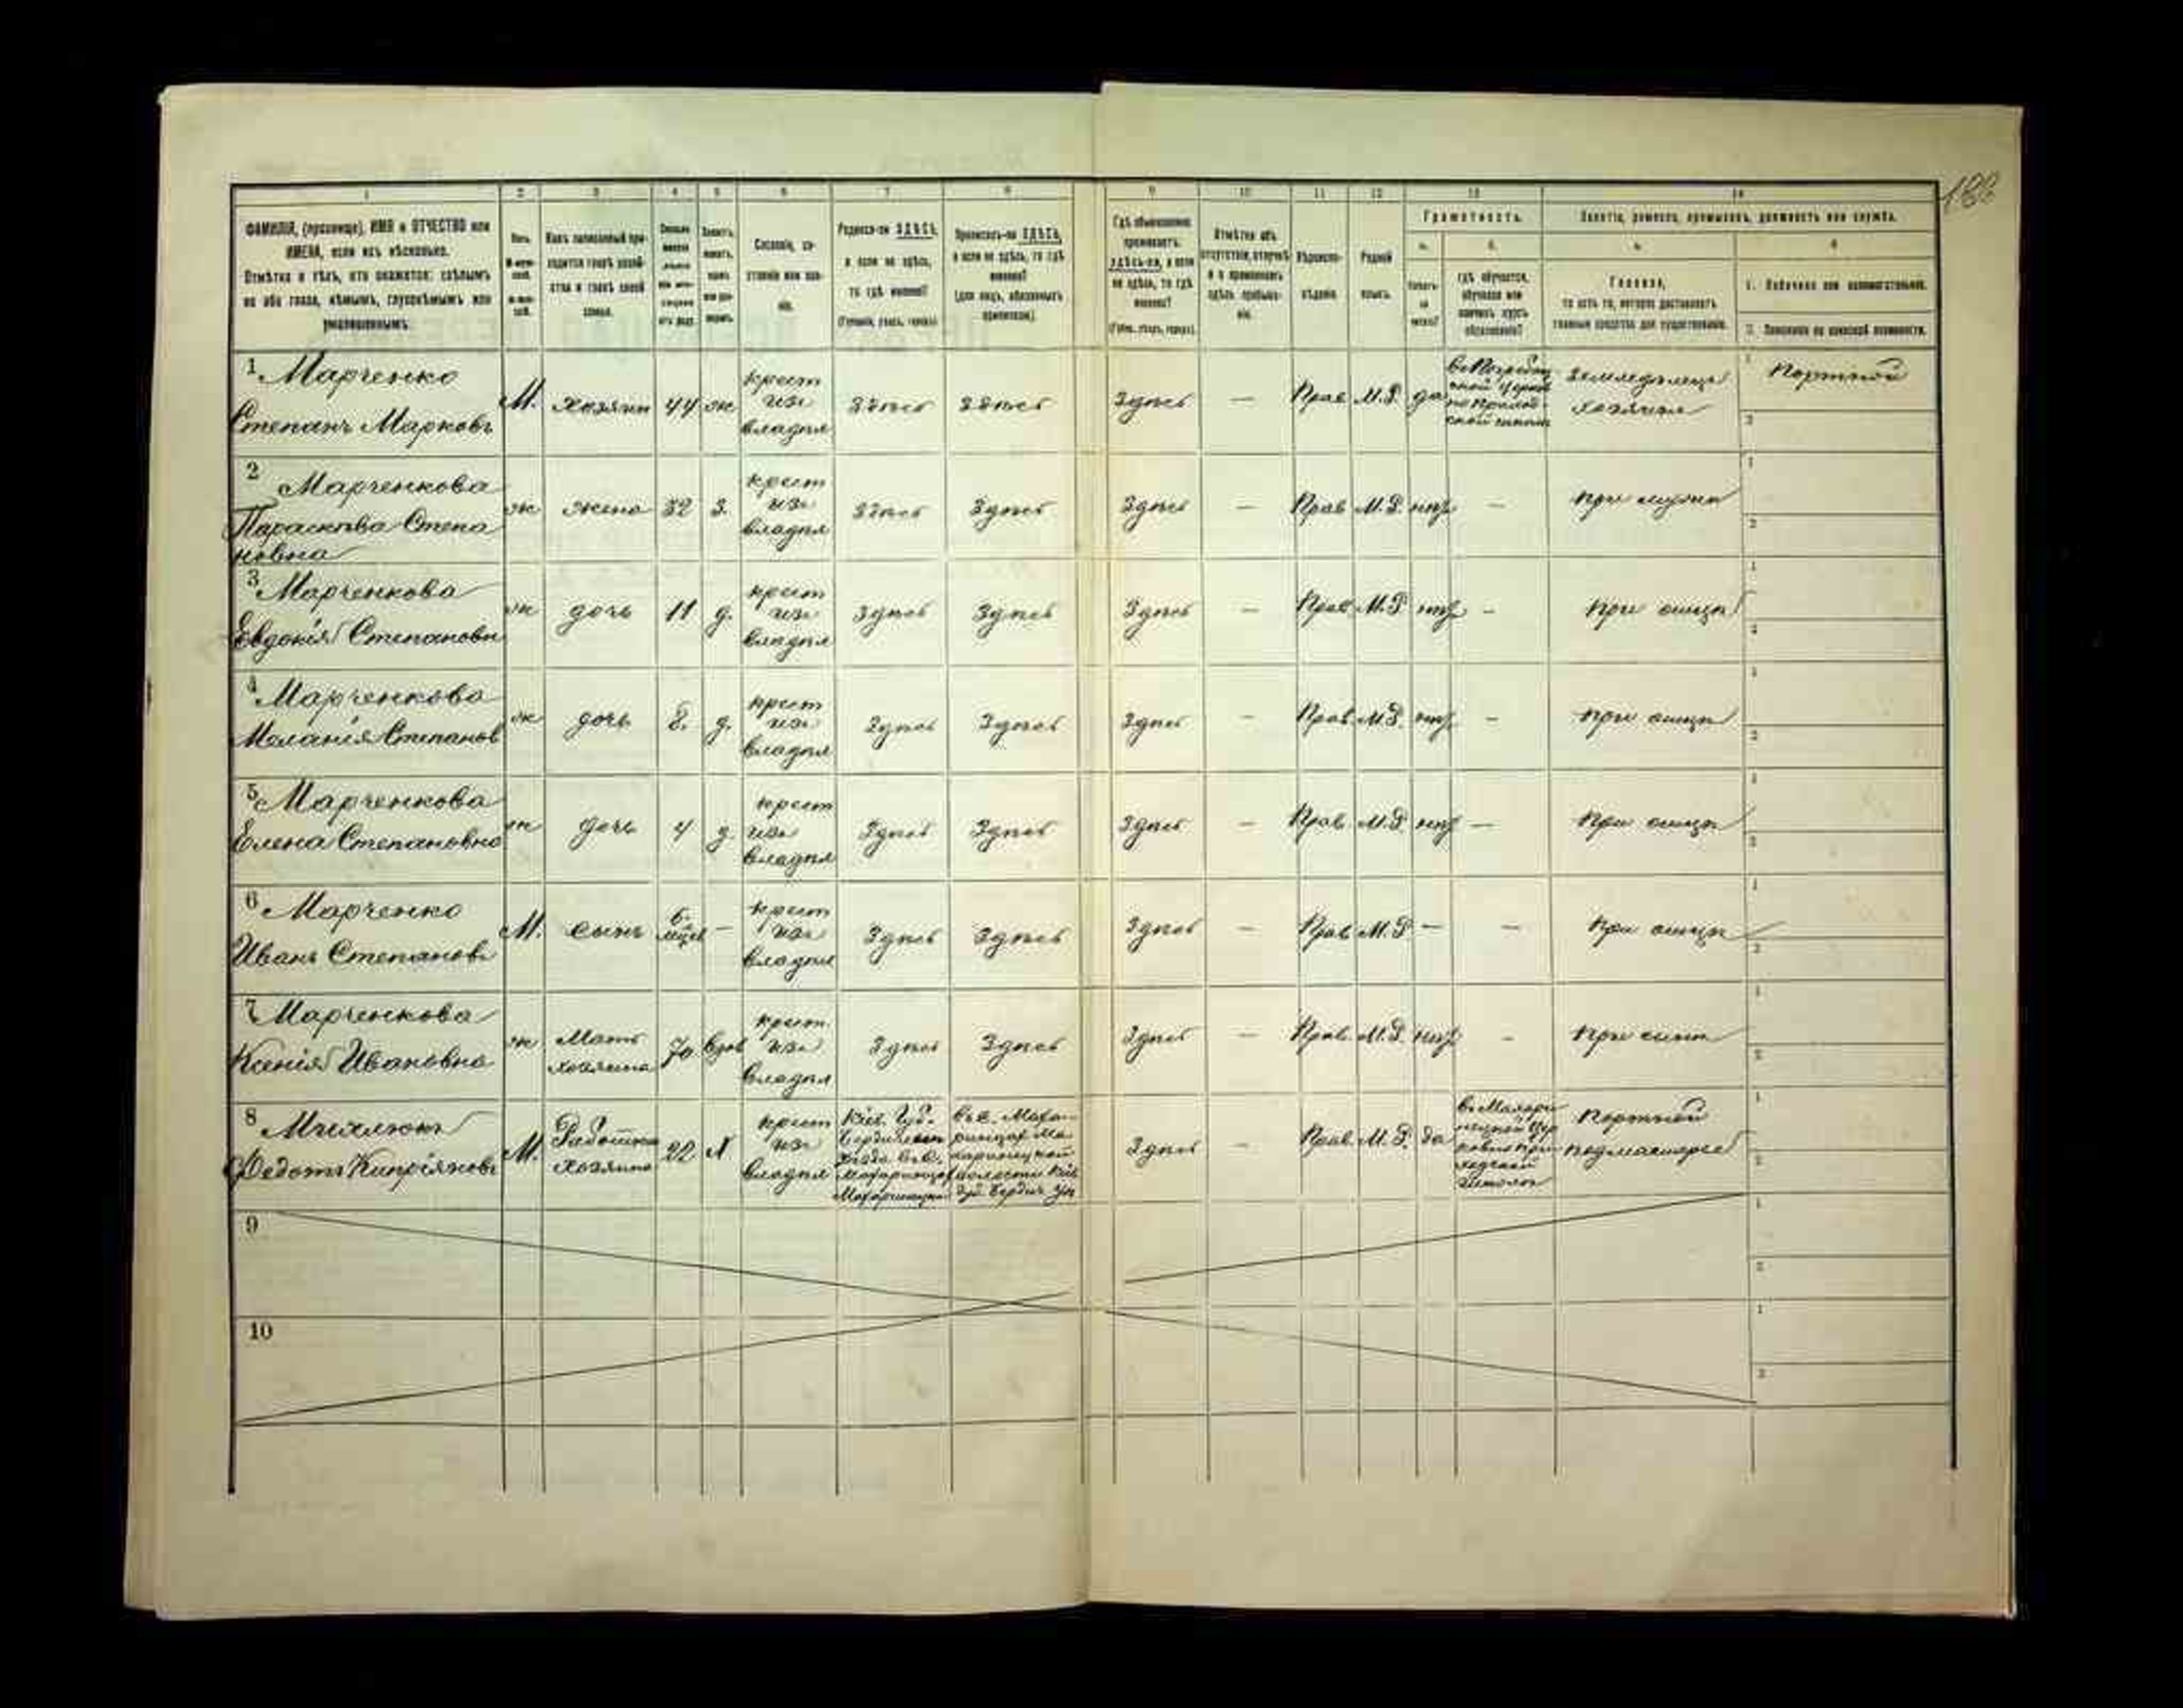 188
1 2 3 4 5 6 7 8 9 10 11 12 13 14
ФАМИЛІЯ, (прозвище), ИМЯ и ОТЧЕСТВО или
ИМЕНА, если ихъ нѣсколько.
Отмѣтка о тѣхъ, кто окажется: слѣпымъ
на оба глаза, нѣмымъ, глухонѣмымъ или
умалишеннымъ.
Полъ.
Какъ записанный при-
ходится главѣ хозяй-
ства и главѣ своей
семьи.
Сословіе, со-
стояніе или зва-
ніе.
Родился-ли ЗДѢСЬ,
а если не здѣсь,
то гдѣ именно?
(Губернія, уѣздъ, городъ).
Приписанъ-ли ЗДѢСЬ,
а если не здѣсь, то гдѣ
именно?
(для лицъ, обязанныхъ
припискою).
Гдѣ обыкновенно
проживаетъ:
здѣсь-ли, а если
не здѣсь, то гдѣ
именно?
(Губер., уѣздъ, городъ).
Отмѣтка объ
отсутствіи, отлучкѣ
и о временномъ
здѣсь пребыва-
ніи.
Вѣроиспо-
вѣданіе.
Родной
языкъ.
Грамотность.
а. б.
гдѣ обучается,
обучался или
кончилъ курсъ
образованія?
Занятіе, ремесло, промыселъ, должность или служба.
а. б.
Главное,
то есть то, которое доставляетъ
главныя средства для существованія.
1. Побочное или вспомогательное.
2. Положеніе по воинской повинности.
1 Марченко
Степанъ Марковъ
М. хозяинъ 44 ж
крест
изъ
владѣл
Здѣсь Здѣсь Здѣсь — Прав М.Р. да
Земледѣлецъ
хозяинъ
1 Портной
2
2 Марченкова
Параскева Степа
новна
ж жена 32 З.
крест
изъ
владѣл
Здѣсь Здѣсь Здѣсь — Прав М.Р. нѣт —
при мужѣ
1
2
3 Марченкова
Евдокія Степановн
ж дочь 11 д.
крест
изъ
владѣл
Здѣсь Здѣсь Здѣсь — Прав М.Р нѣт —
при отцѣ
1
2
4 Марченкова
Меланія Степанов
ж дочь 8. д.
крест
изъ
владѣл
Здѣсь Здѣсь Здѣсь — Прав. М.Р. нѣт —
при отцѣ
1
2
5 Марченкова
Елена Степановна
ж дочь 4 д.
крест
изъ
владѣл
Здѣсь Здѣсь Здѣсь — Прав. М.Р нѣт —
при отцѣ
1
2
6 Марченко
Иванъ Степановъ
М. сынъ 6. —
крест
изъ
владѣл
Здѣсь Здѣсь Здѣсь — Прав. М.Р — —
при отцѣ
1
2
7 Марченкова
Ксенія Ивановна
ж Мать
хозяина
70 вдов
крест.
изъ
владѣл
Здѣсь Здѣсь Здѣсь — Прав. М.Р. нѣт —
при сынѣ
1
2
8 Михалюкъ
Федотъ Кипріяновъ
М. Работник
хозяина
22 Х
крест
изъ
владѣл
Кіев. Губ.
Здѣсь — Прав. М.Р. да
Портной
подмастерье
1
2
9
1
2
10
1
2